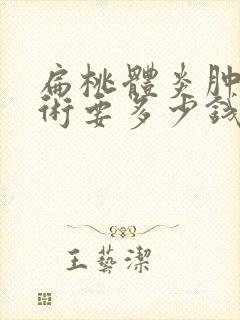 扁桃體炎肿
術要多少錢
王藝潔